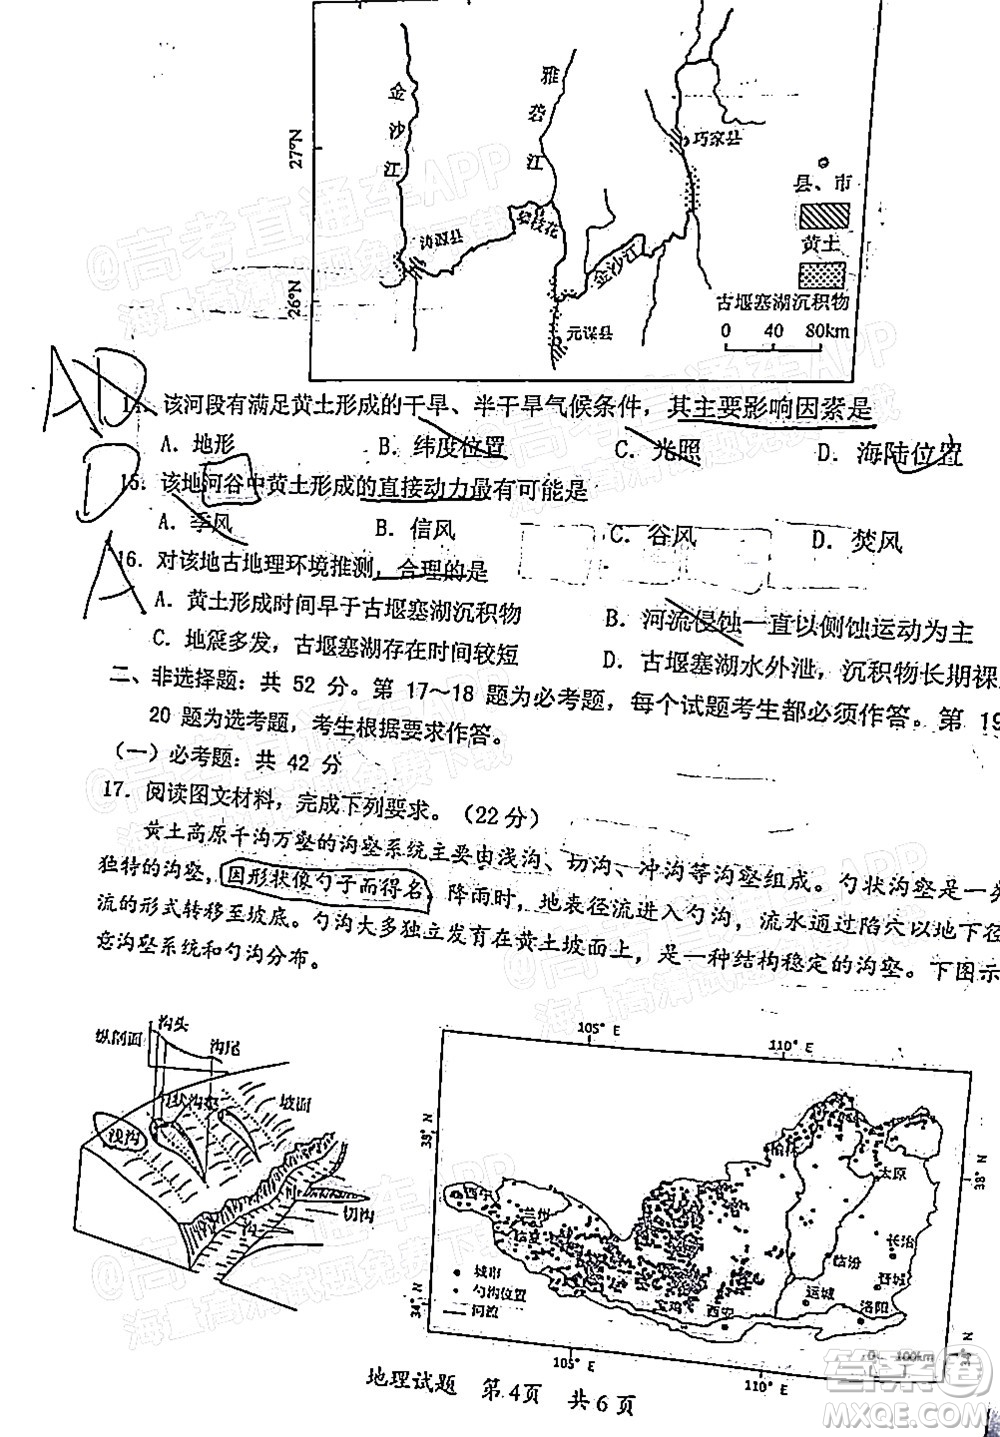 27°N
26°N
金沙江
雅砻江
攀枝花
金沙江
巧家县
元谋县
县、市
黄土
古堰塞湖沉积物
0 40 80km
AD
14. 该河段有满足黄土形成的干旱、半干旱气候条件，其主要影响因素是
A. 地形 B. 纬度位置 C. 光照 D. 海陆位置
D
15. 该地河谷中黄土形成的直接动力最有可能是
A. 季风 B. 信风 C. 谷风 D. 焚风
A
16. 对该地古地理环境推测，合理的是
A. 黄土形成时间早于古堰塞湖沉积物 B. 河流侵蚀一直以侧蚀运动为主
C. 地震多发，古堰塞湖存在时间较短 D. 古堰塞湖水外泄，沉积物长期裸
二、非选择题：共 52 分。第 17～18 题为必考题，每个试题考生都必须作答。第 19
20 题为选考题，考生根据要求作答。
（一）必考题：共 42 分
17. 阅读图文材料，完成下列要求。（22 分）
黄土高原千沟万壑的沟壑系统主要由浅沟、切沟、冲沟等沟壑组成。勺状沟壑是一
独特的沟壑，因形状像勺子而得名，降雨时，地表径流进入勺沟，流水通过陷穴以地下径
流的形式转移至坡底。勺沟大多独立发育在黄土坡面上，是一种结构稳定的沟壑。下图示
意沟壑系统和勺沟分布。
纵剖面
沟头
沟尾
勺状沟壑
坡面
浅沟
切沟
105° E
110° E
38° N
34° N
38° N
34° N
105° E
110° E
西宁
兰州
临夏
榆林
太原
长治
临汾
晋城
运城
洛阳
西安
宝鸡
城市
勺沟位置
河流
0 100km
地理试题 第4页 共6页
@高考直通车APP
海量高清试题免费下载
答案圈
MXQE.COM